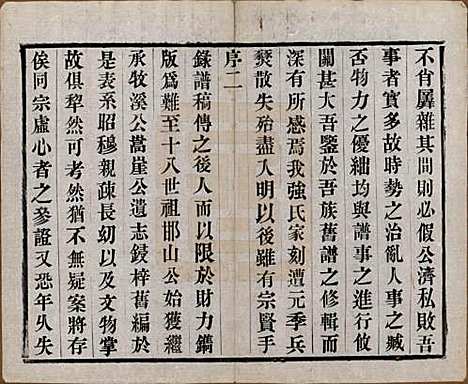 不肖孱雜其間則必假公濟私敗吾
事者實多故時勢之治亂人事之臧
否物力之優絀均與譜事之進行攸
關甚大吾鑒於吾族舊譜之修輯而
深有所感焉我強氏家刻遭元季兵
燹散失殆盡入明以後雖有宗賢手
序二
錄譜稿傳之後人而以限於財力鐫
版爲難至十八世祖邗山公始獲繼
承牧溪公嵩崖公遺志鋟梓舊編於
是表系昭穆親疎長幼以及文物掌
故俱犁然可考然猶不無疑案將存
俟同宗虛心者之參證又恐年久失